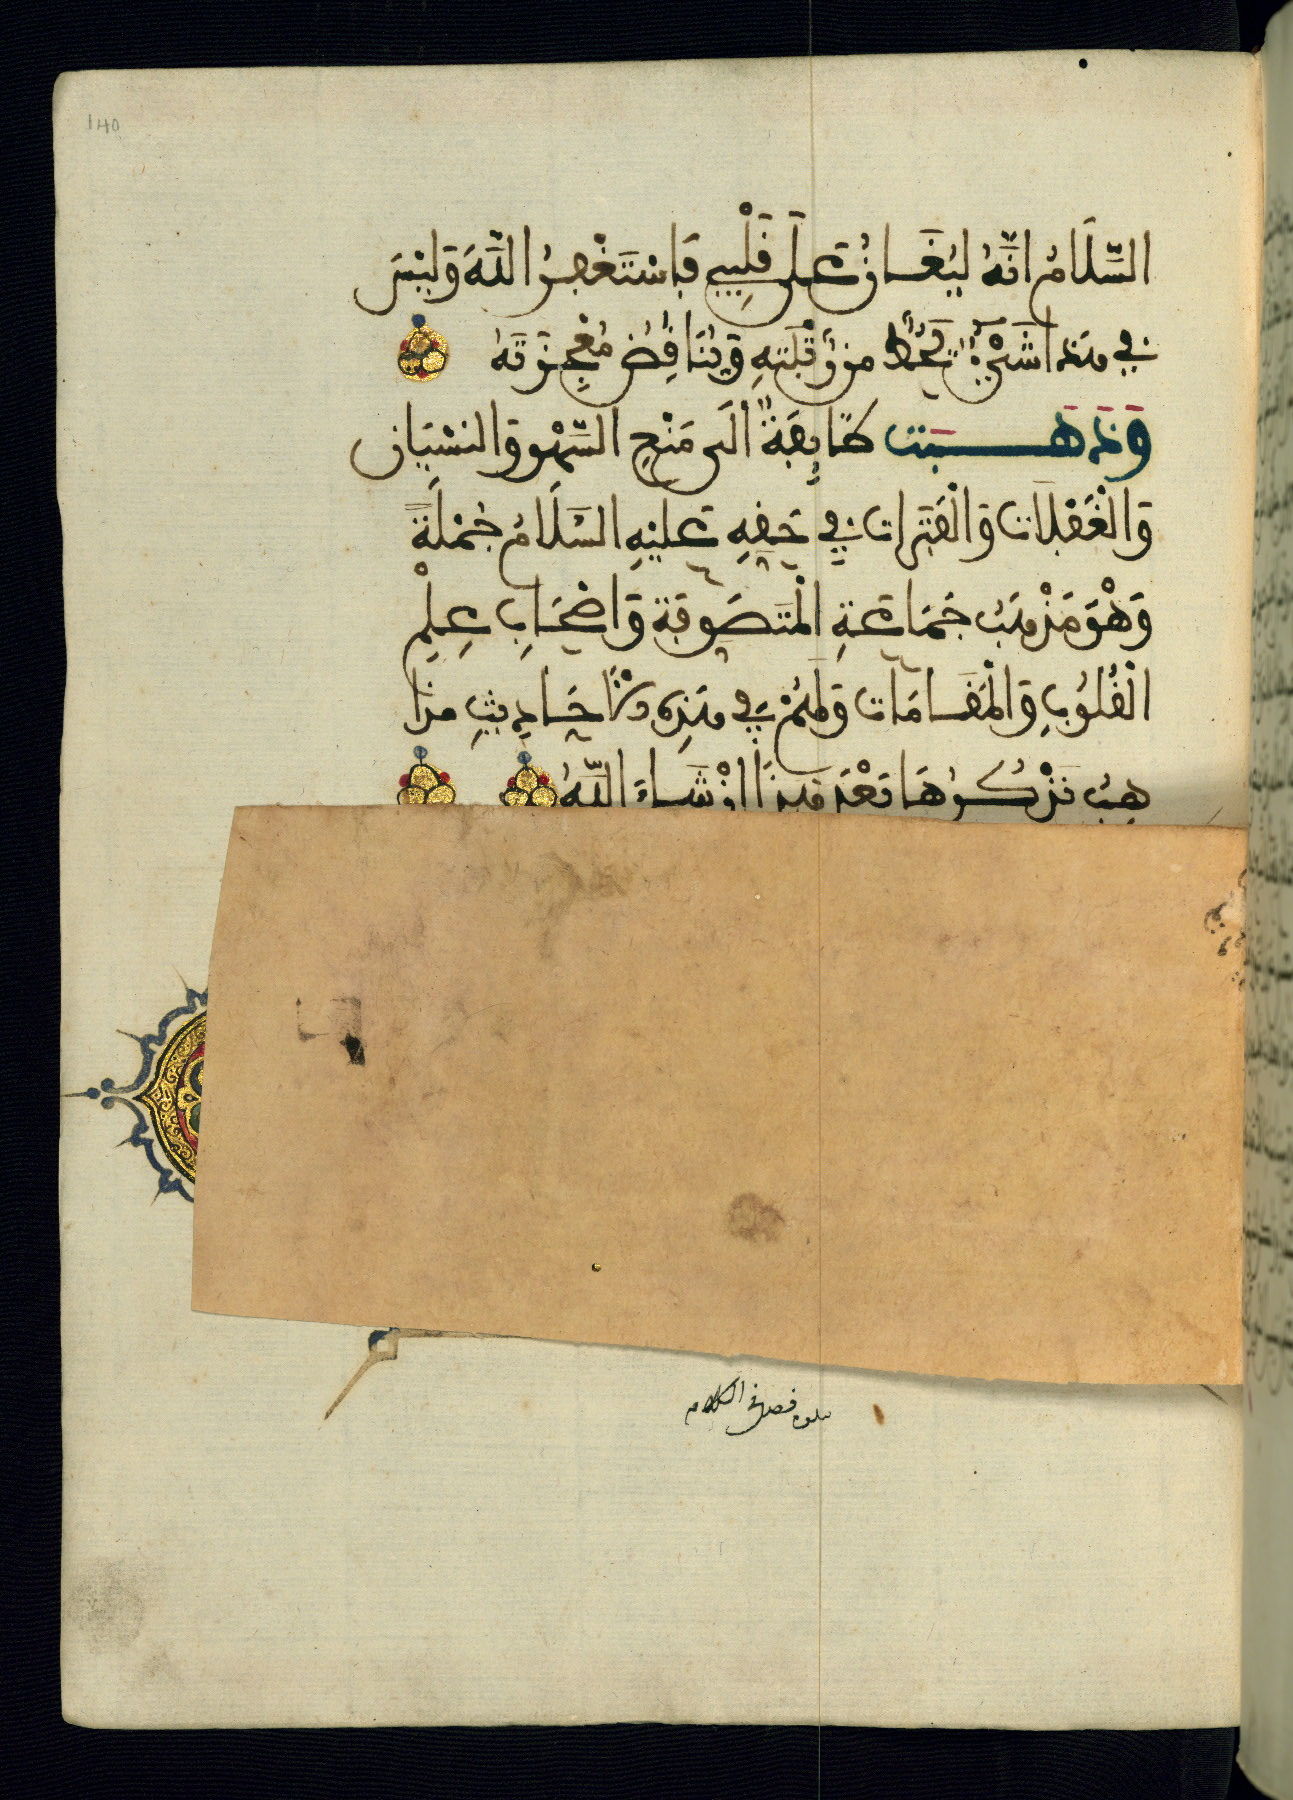 140
السَّلَامُ اِنَّهُ لَيُغَانُ عَلَى قَلْبِي فَاسْتَغْفِرُ اللَّهَ وَلَيْسَ
فِي هَذَا شَيْءٌ يَحُطُّ مِنْ رُتْبَتِهِ وَيُنَاقِضُ مُعْجِزَتَهُ
وَذَهَبَت طَايِفَةٌ اِلَى مَنْعِ السَّهْوِ وَالنِّسْيَانِ
وَالْغَفَلَاتِ وَالْفَتَرَاتِ فِي حَقِّهِ عَلَيْهِ السَّلَامُ جُمْلَةً
وَهْوَ مَذْهَبُ جَمَاعَةِ الْمُتَصَوِّفَةِ وَاَصْحَابِ عِلْمِ
الْقُلُوبِ وَالْمَقَامَاتِ وَلَهُمْ فِي هَذِهِ الْاَحَادِيثِ مَذَا
هِبُ نَذْكُرُهَا بَعْدَ هَذَا اِنْ شَاءَ اللَّهُ
يتلوه فصل في الكلام